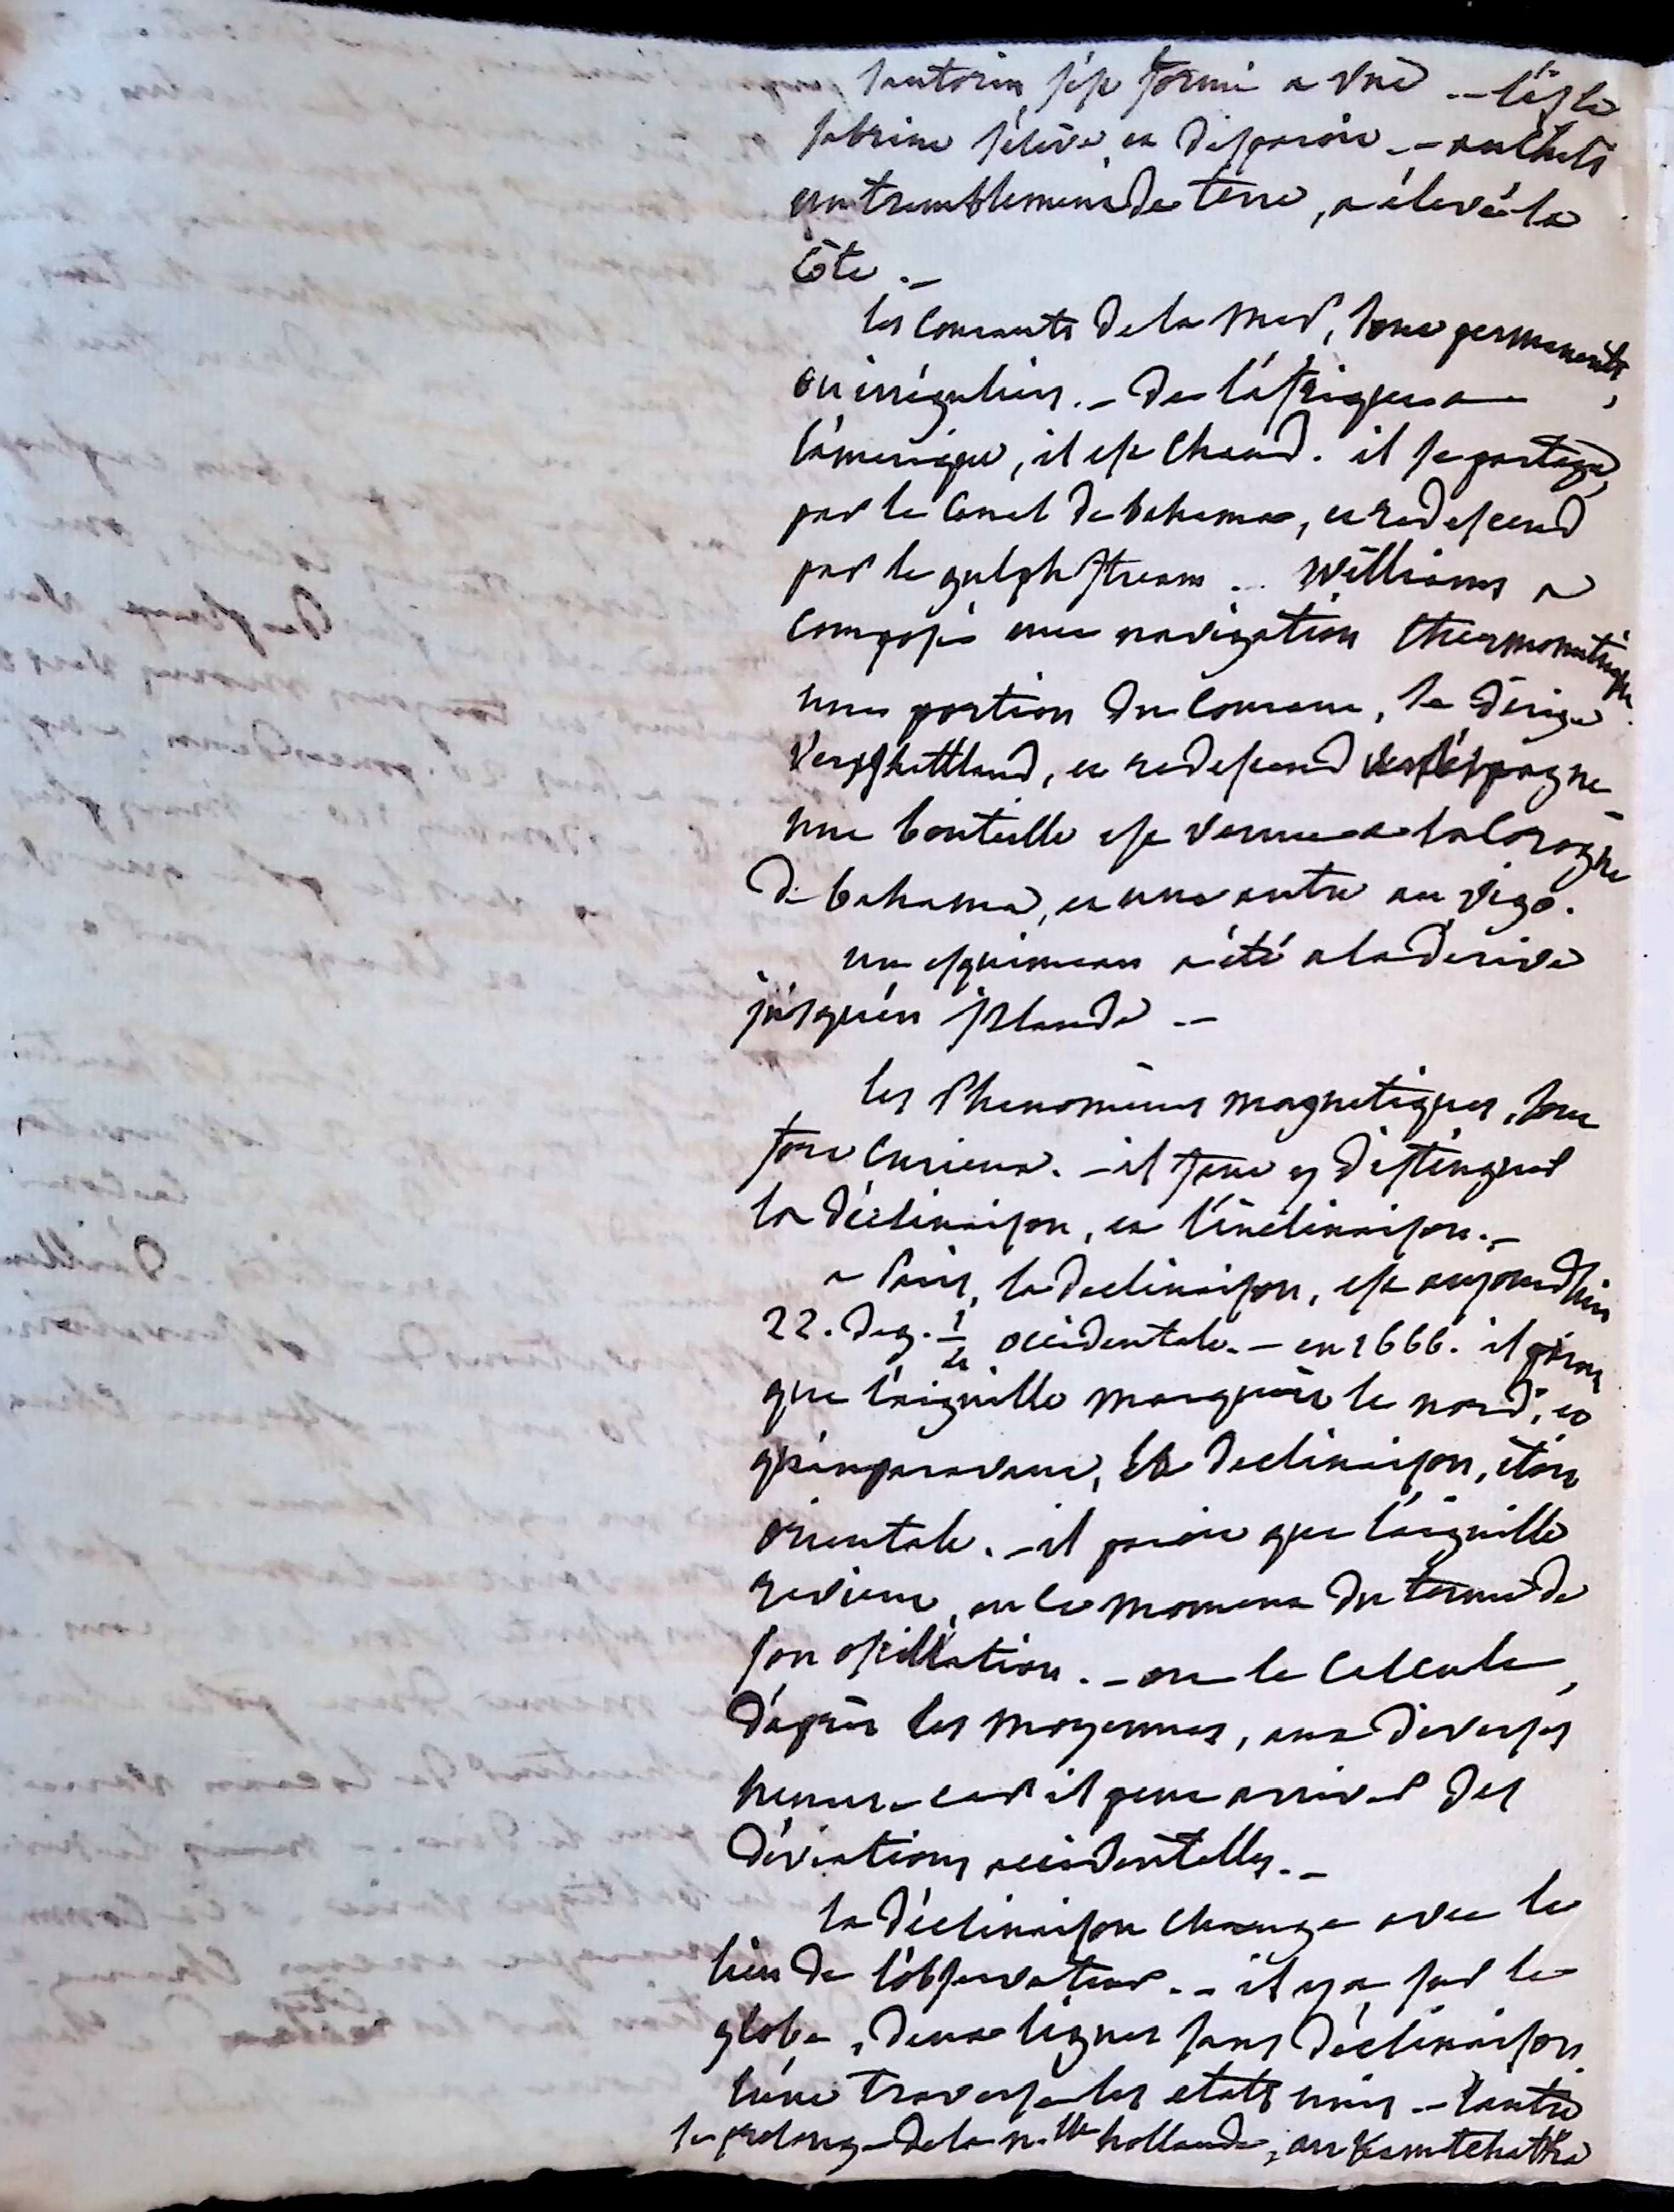 Santorin, s'est formé a vue -- l'isle
sabrina s'élève, et disparoit. -- au Chili
un tremblement de terre, a élevé la
côte. --
les Courants de la mer, sont permanents,
ou irréguliers. -- de l'afrique a
l'amérique, il est Chaud. il se partage,
par le Canal de bahama, et redescend
par le gulphstream -- Williams a
Composé une navigation thermometrique.
une portion du Courant, se dirige
vers shettland, et redescend vers l'espagne --
une bouteille est venue a la Corogne
de bahama, et une autre au vigo.
un esquimeau a été a la dérive
jusqu'en islande --
les Phenomènes magnetiques, sont
fort Curieux. -- il faut y distinguer
la déclinaison, et l'inclinaison. --
a Paris, la declinaison, est aujourdhui
22. deg. 1/2 occidentale. -- en 1666. il paroit
que l'aiguille marquoit le nord, et
qu'auparavant, la declinaison, étoit
orientale. -- il paroit que l'aiguille
revient, en ce moment du terme de
son oscillation. -- on le Calcule,
d'après les moyennes, aux diverses
heures -- car il peut arriver des
déviations accidentelles. --
la déclinaison Change avec le
lieu de l'observateur. -- il y a, sur le
globe, deux lignes sans déclinaison.
l'une traverse les etats unis -- l'autre
se prolonge de la n.lle hollande, au Kamtchatka